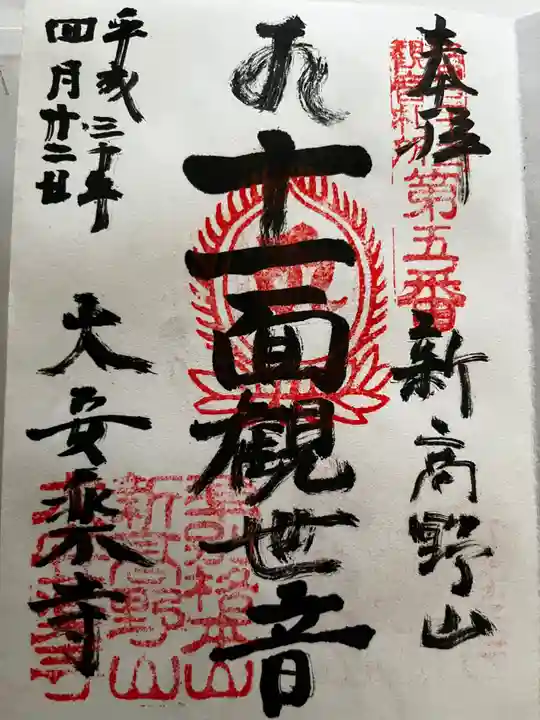 奉拝
第五番
新高野山
十一面観世音
平成三十年
四月廿二日
大安楽寺
準別格本山
新高野山